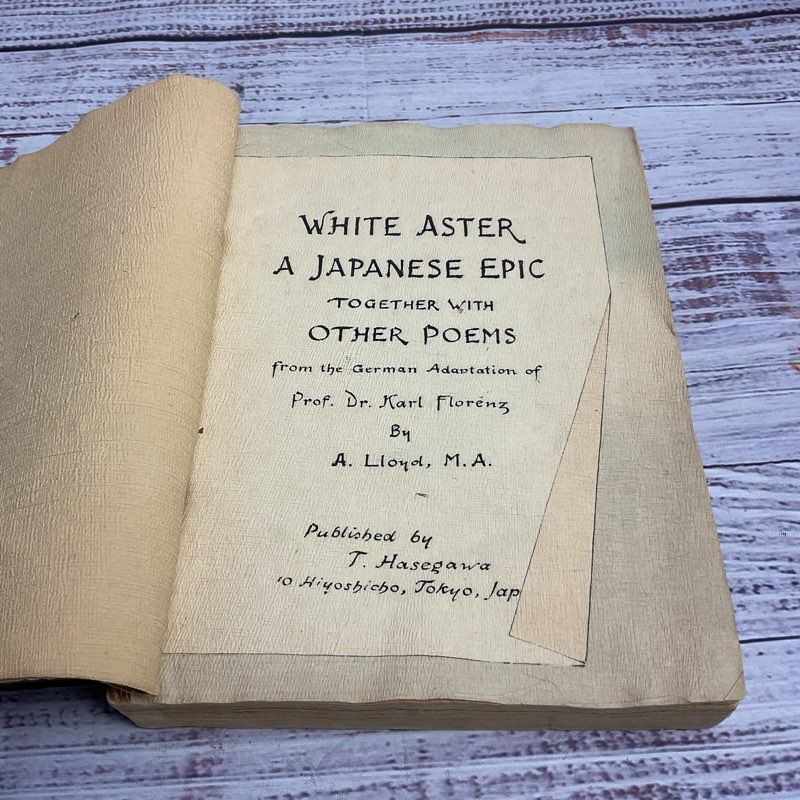 WHITE ASTER
A JAPANESE EPIC
TOGETHER WITH
OTHER POEMS
from the German Adaptation of
Prof. Dr. Karl Florenz
By
A. Lloyd, M.A.
Published by
T. Hasegawa
10 Hiyoshicho, Tokyo, Jap